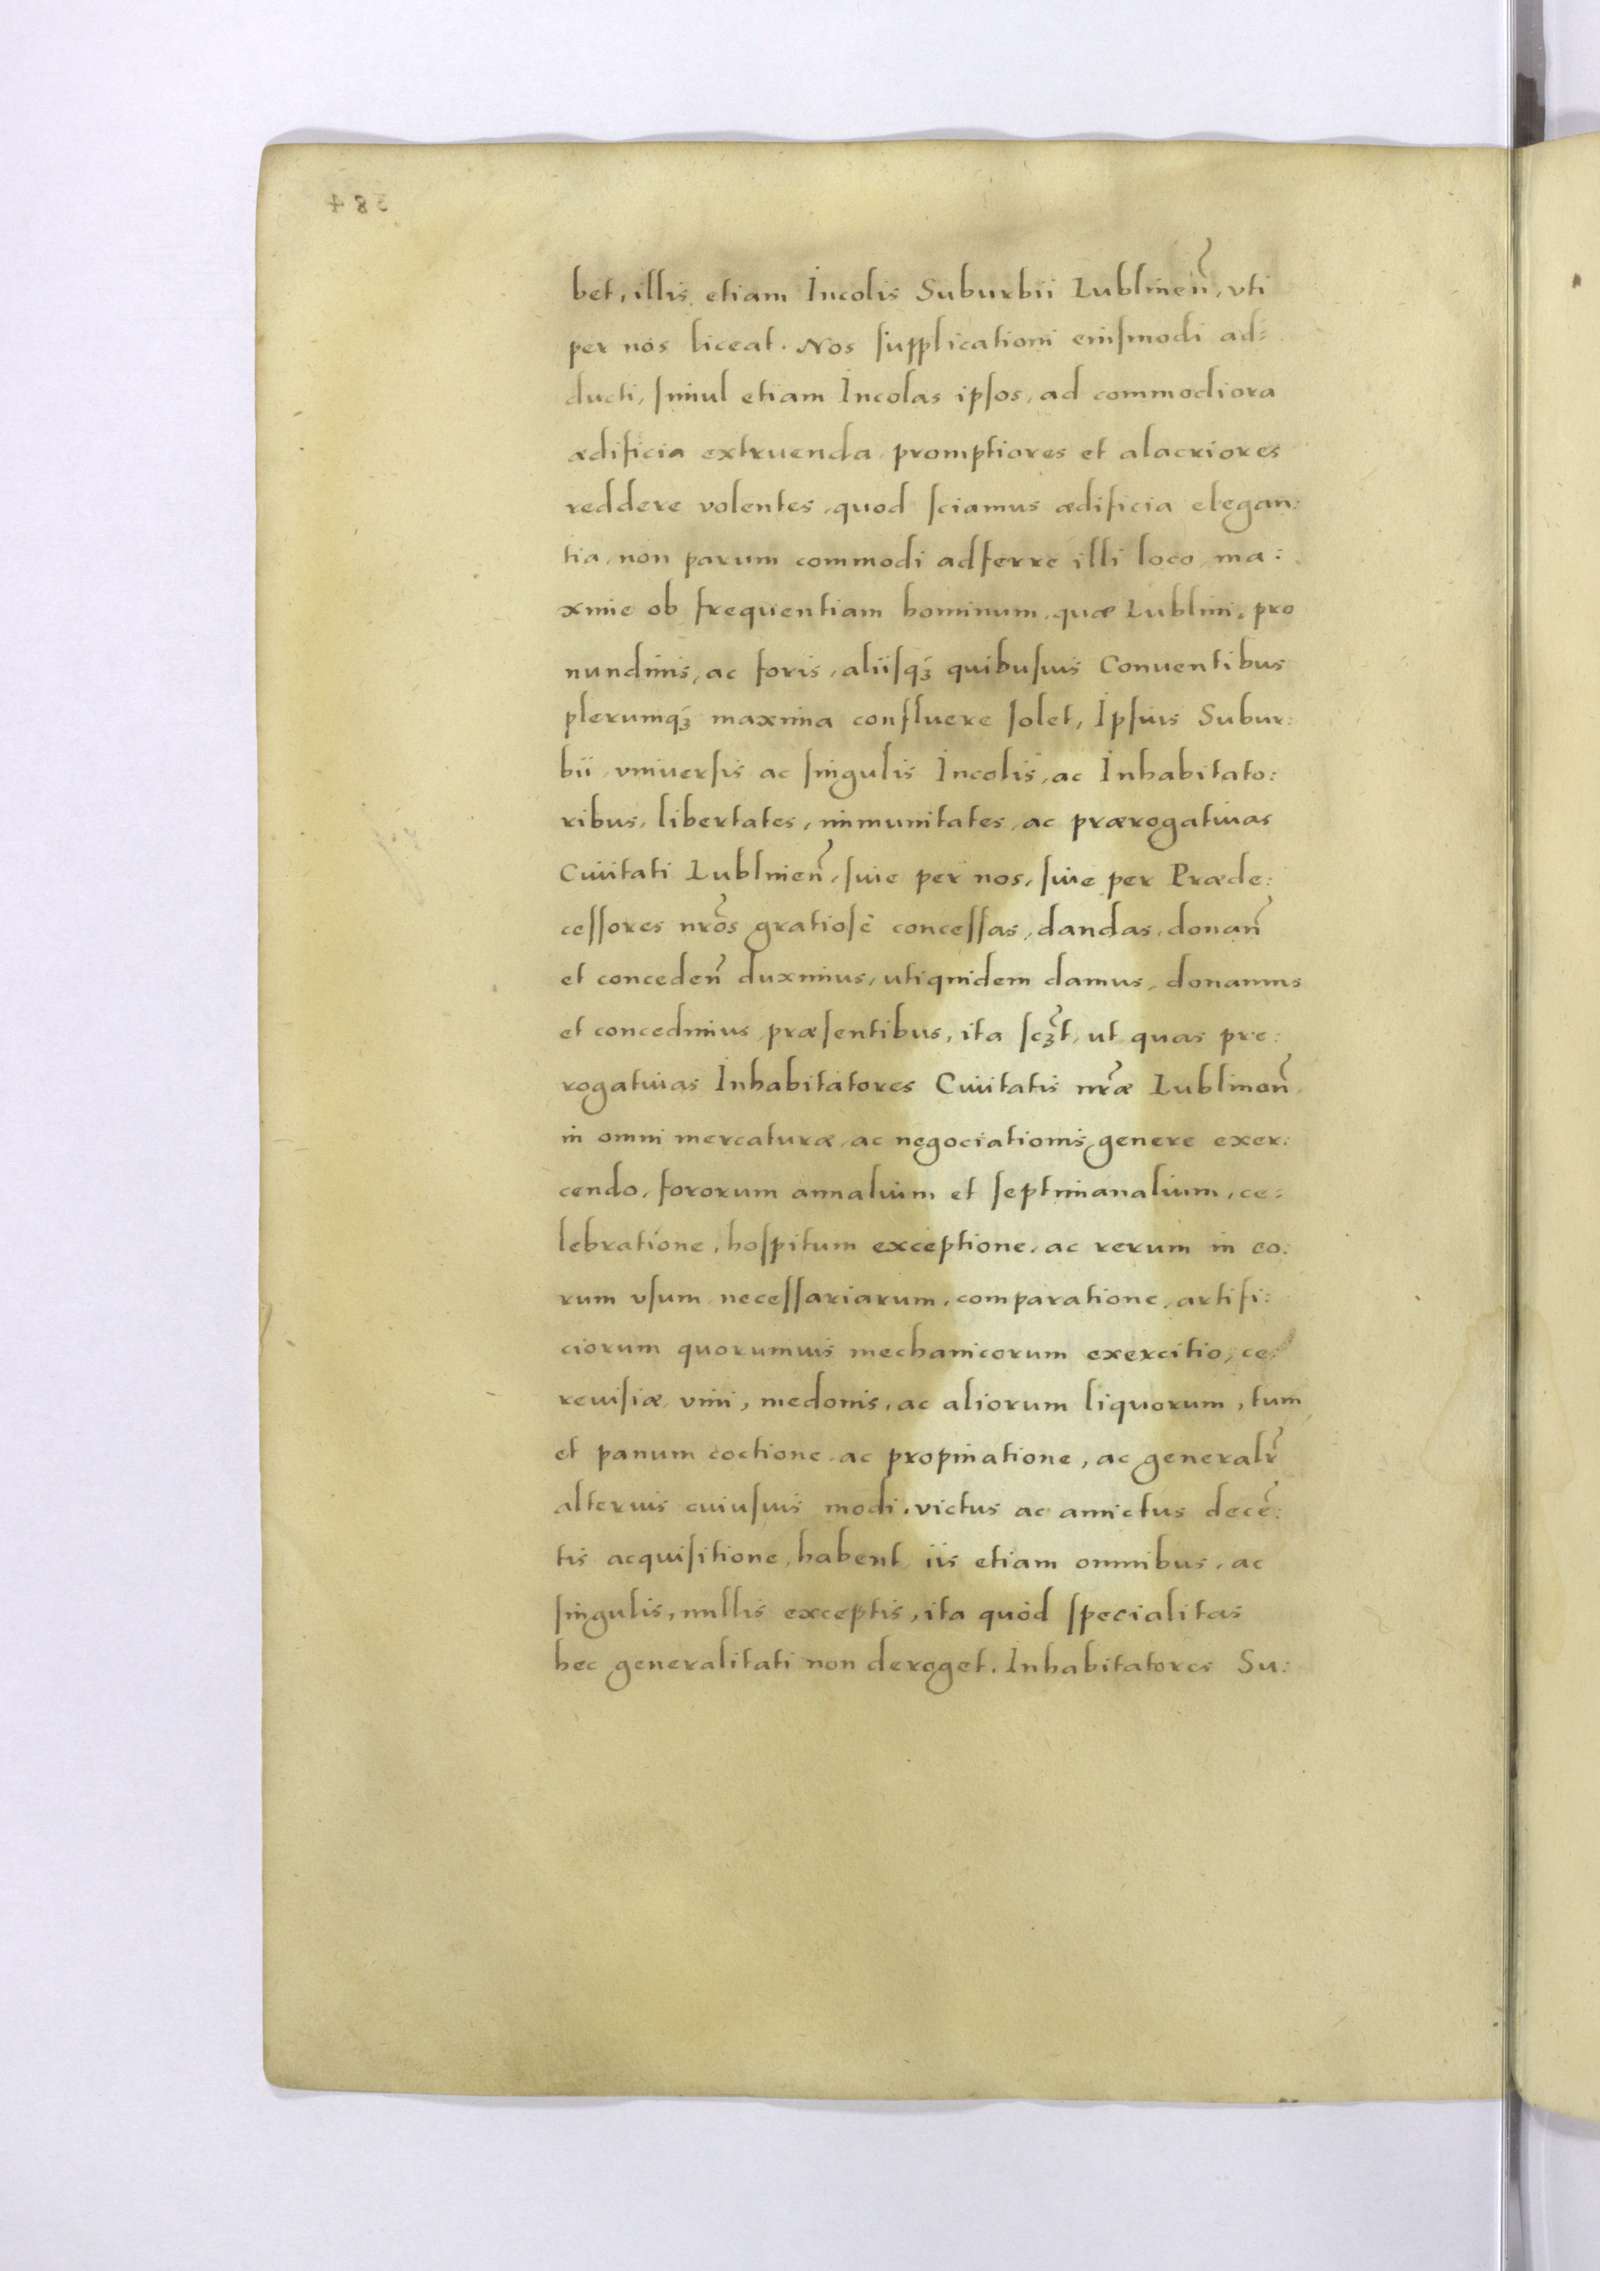 384
bet, illis etiam Incolis Suburbii Lublinen̄, vti
per nos liceat. Nos supplicationi eiusmodi ad=
ducti, simul etiam Incolas ipsos, ad commodiora
ædificia extruenda promptiores et alacriores
reddere volentes, quod sciamus ædificia elegan:
tia, non parum commodi adferre illi loco ma:
xime ob frequentiam hominum, quæ Lublini, pro
nundinis, ac foris, aliisqꝫ quibusuis Conuentibus
plerumqꝫ maxima confluere solet, Ipsius Subur:
bii vniuersis ac singulis Incolis, ac Inhabitato:
ribus, libertates, immunitates, ac prærogatiuas
Ciuitati Lublinen̄, siue per nos, siue per Præde:
cessores nr̄os gratiosè concessas, dandas, donan̄
et conceden̄ duximus, utiquidem damus, donamus
et concedimus præsentibus, ita scꝫt, ut quas pre:
rogatiuas Inhabitatores Ciuitatis nr̄æ Lublinen̄
in omni mercaturæ, ac negociationis genere exer:
cendo, fororum annalium et septimanalium, ce:
lebratione, hospitum exceptione, ac rerum in eo:
rum vsum necessariarum, comparatione, artifi:
ciorum quorumuis mechanicorum exercitio, ce:
reuisiæ vini, medonis, ac aliorum liquorum, tum
et panum coctione ac propinatione, ac generalr̄
alterius cuiusuis modi, victus ac amictus decē:
tis acquisitione, habent iis etiam omnibus, ac
singulis, nullis exceptis, ita quòd specialitas
hec generalitati non deroget. Inhabitatores Su: